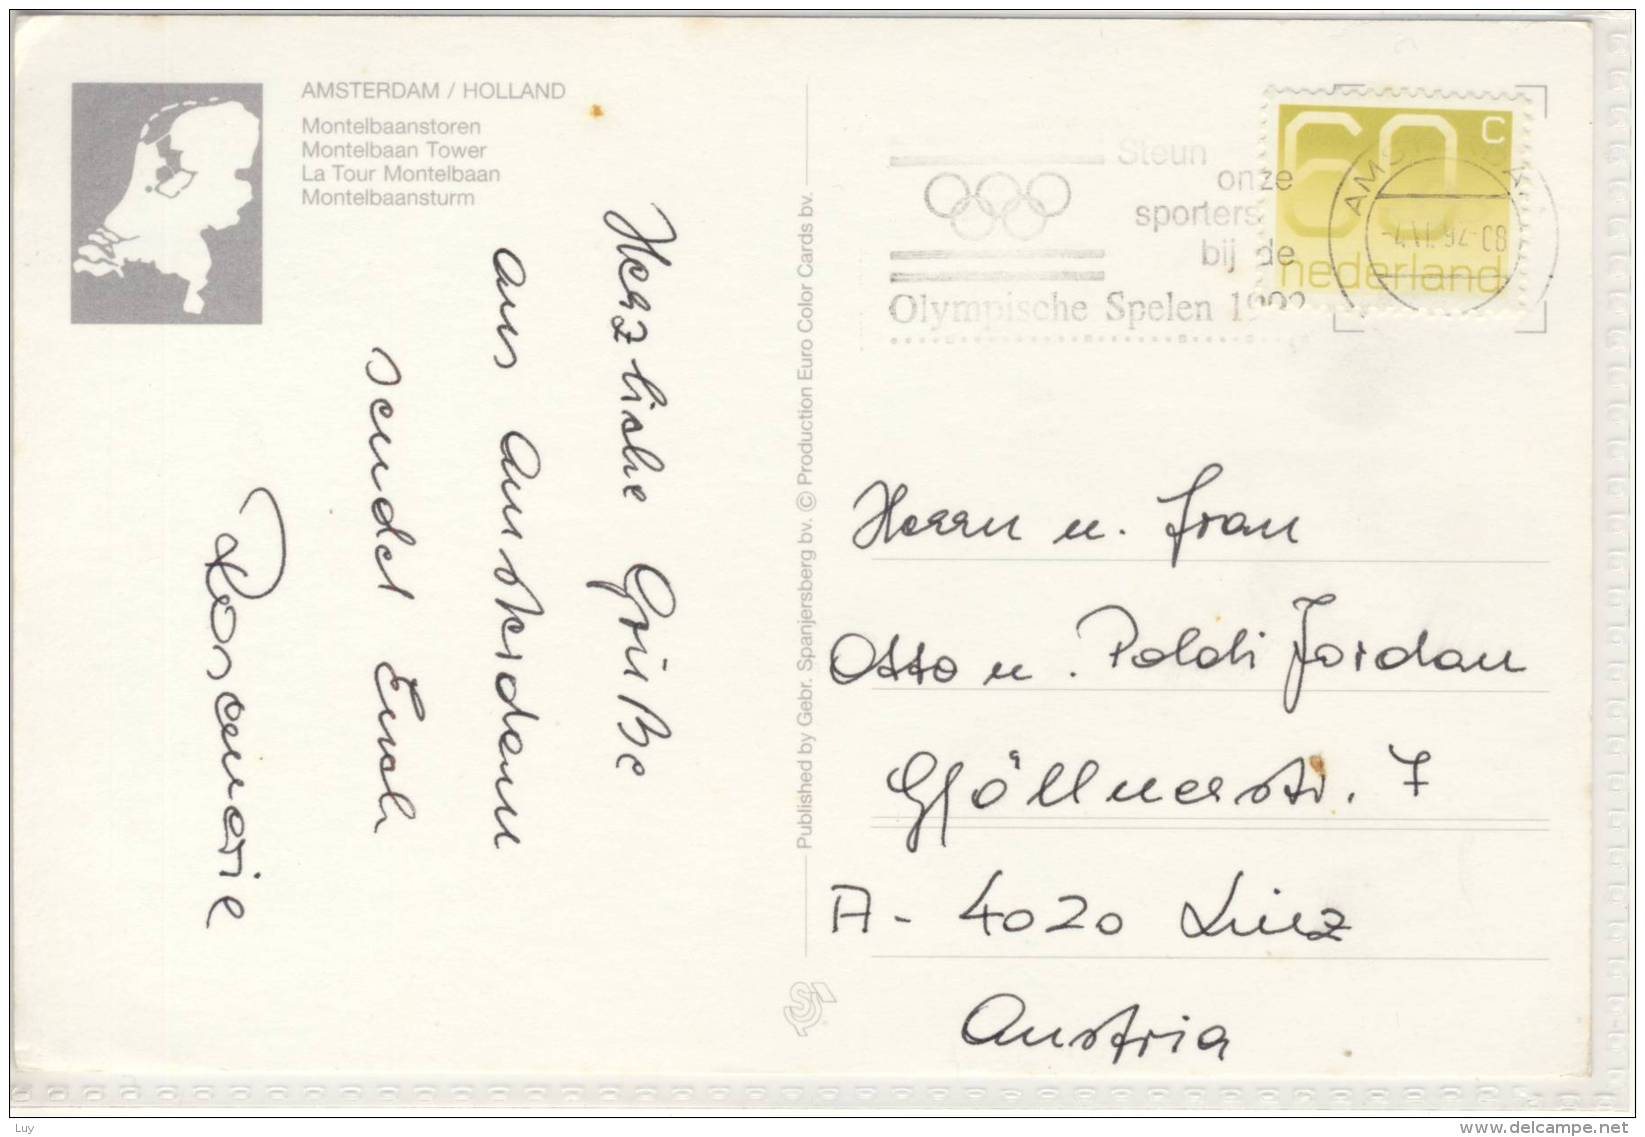 AMSTERDAM / HOLLAND
Montelbaanstoren
Montelbaan Tower
La Tour Montelbaan
Montelbaansturm
Herzliche Grüße
aus Amsterdam
sendet Euch
Rosemarie
Published by Gebr. Spanjersberg bv. © Production Euro Color Cards bv.
Steun
onze
sporters
bij de
Olympische Spelen 1992
60 c
nederland
Herrn u. Frau
Otto u. Poldi Jordan
Gföllnerstr. 7
A - 4020 Linz
Austria
Luy
www.delcampe.net